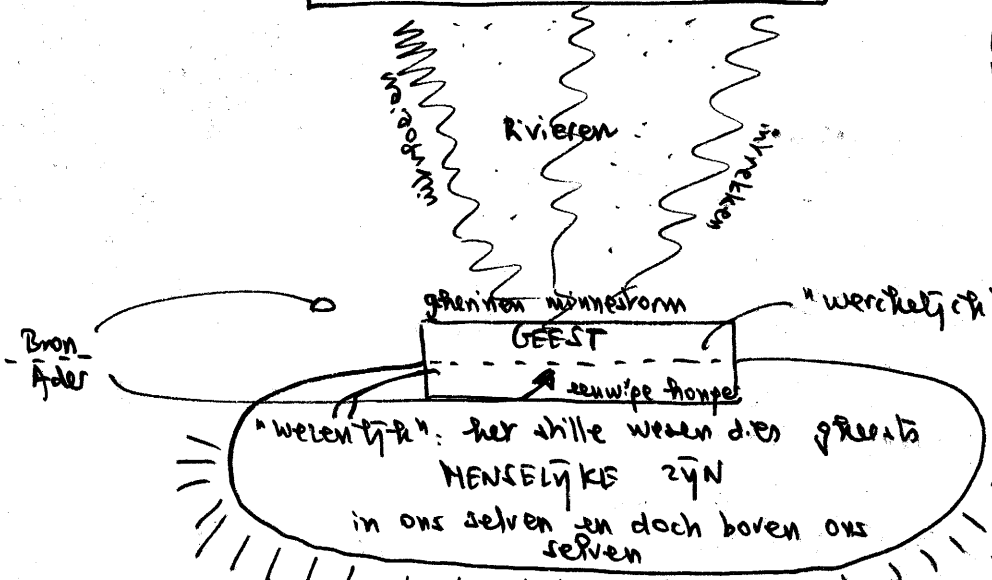 uitvloeien
Rivieren
intrekken
gherinnen minnestorm
"wercheljch"
GEEST
Bron
Ader
eeuwige honger
"wezenlijk": het stille wesen dies gheests
MENSELIJKE ZIJN
in ons selven en doch boven ons
selven